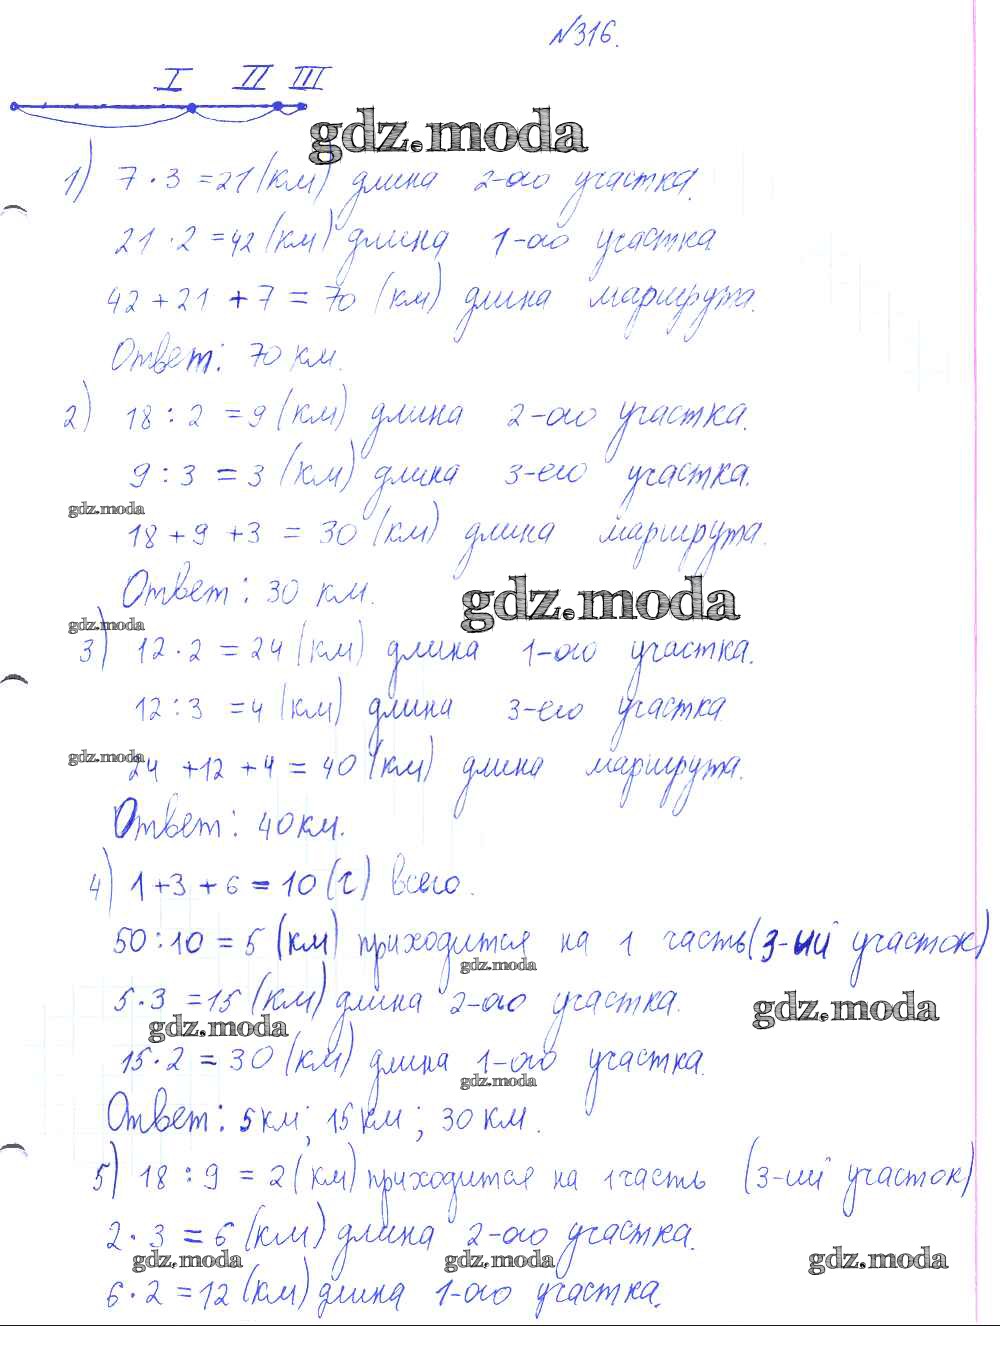 №316.
I II III
gdz.moda
1) 7·3=21(км) длина 2-ого участка.
21·2=42(км) длина 1-ого участка
42+21+7=70 (км) длина маршрута.
Ответ: 70 км.
2) 18:2=9 (км) длина 2-ого участка.
9:3=3 (км) длина 3-его участка.
gdz.moda
18+9+3=30 (км) длина маршрута.
Ответ: 30 км.
gdz.moda
gdz.moda
3) 12·2=24 (км) длина 1-ого участка.
12:3=4 (км) длина 3-его участка
gdz.moda
24+12+4=40 (км) длина маршрута.
Ответ: 40 км.
4) 1+3+6=10 (ч) всего.
50:10=5 (км) приходится на 1 часть (3-ий участок)
gdz.moda
5·3=15 (км) длина 2-ого участка.
gdz.moda
gdz.moda
15·2=30 (км) длина 1-ого участка.
gdz.moda
Ответ: 5 км; 15 км; 30 км.
5) 18:9=2 (км) приходится на 1 часть (3-ий участок)
2·3=6 (км) длина 2-ого участка.
gdz.moda gdz.moda gdz.moda
6·2=12 (км) длина 1-ого участка.